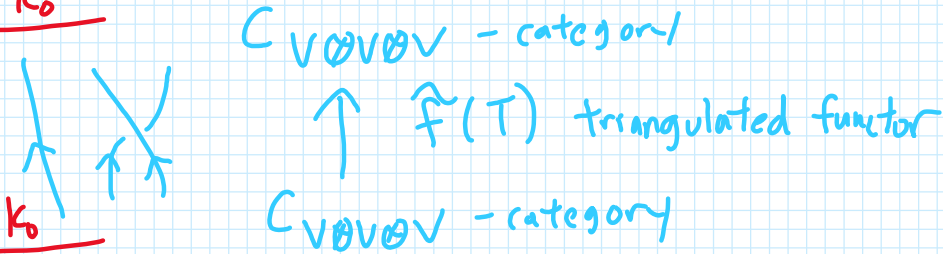 K₀
C_{V⊗V⊗V} - category
↑ f̂(T) triangulated functor
K₀
C_{V⊗V⊗V} - category